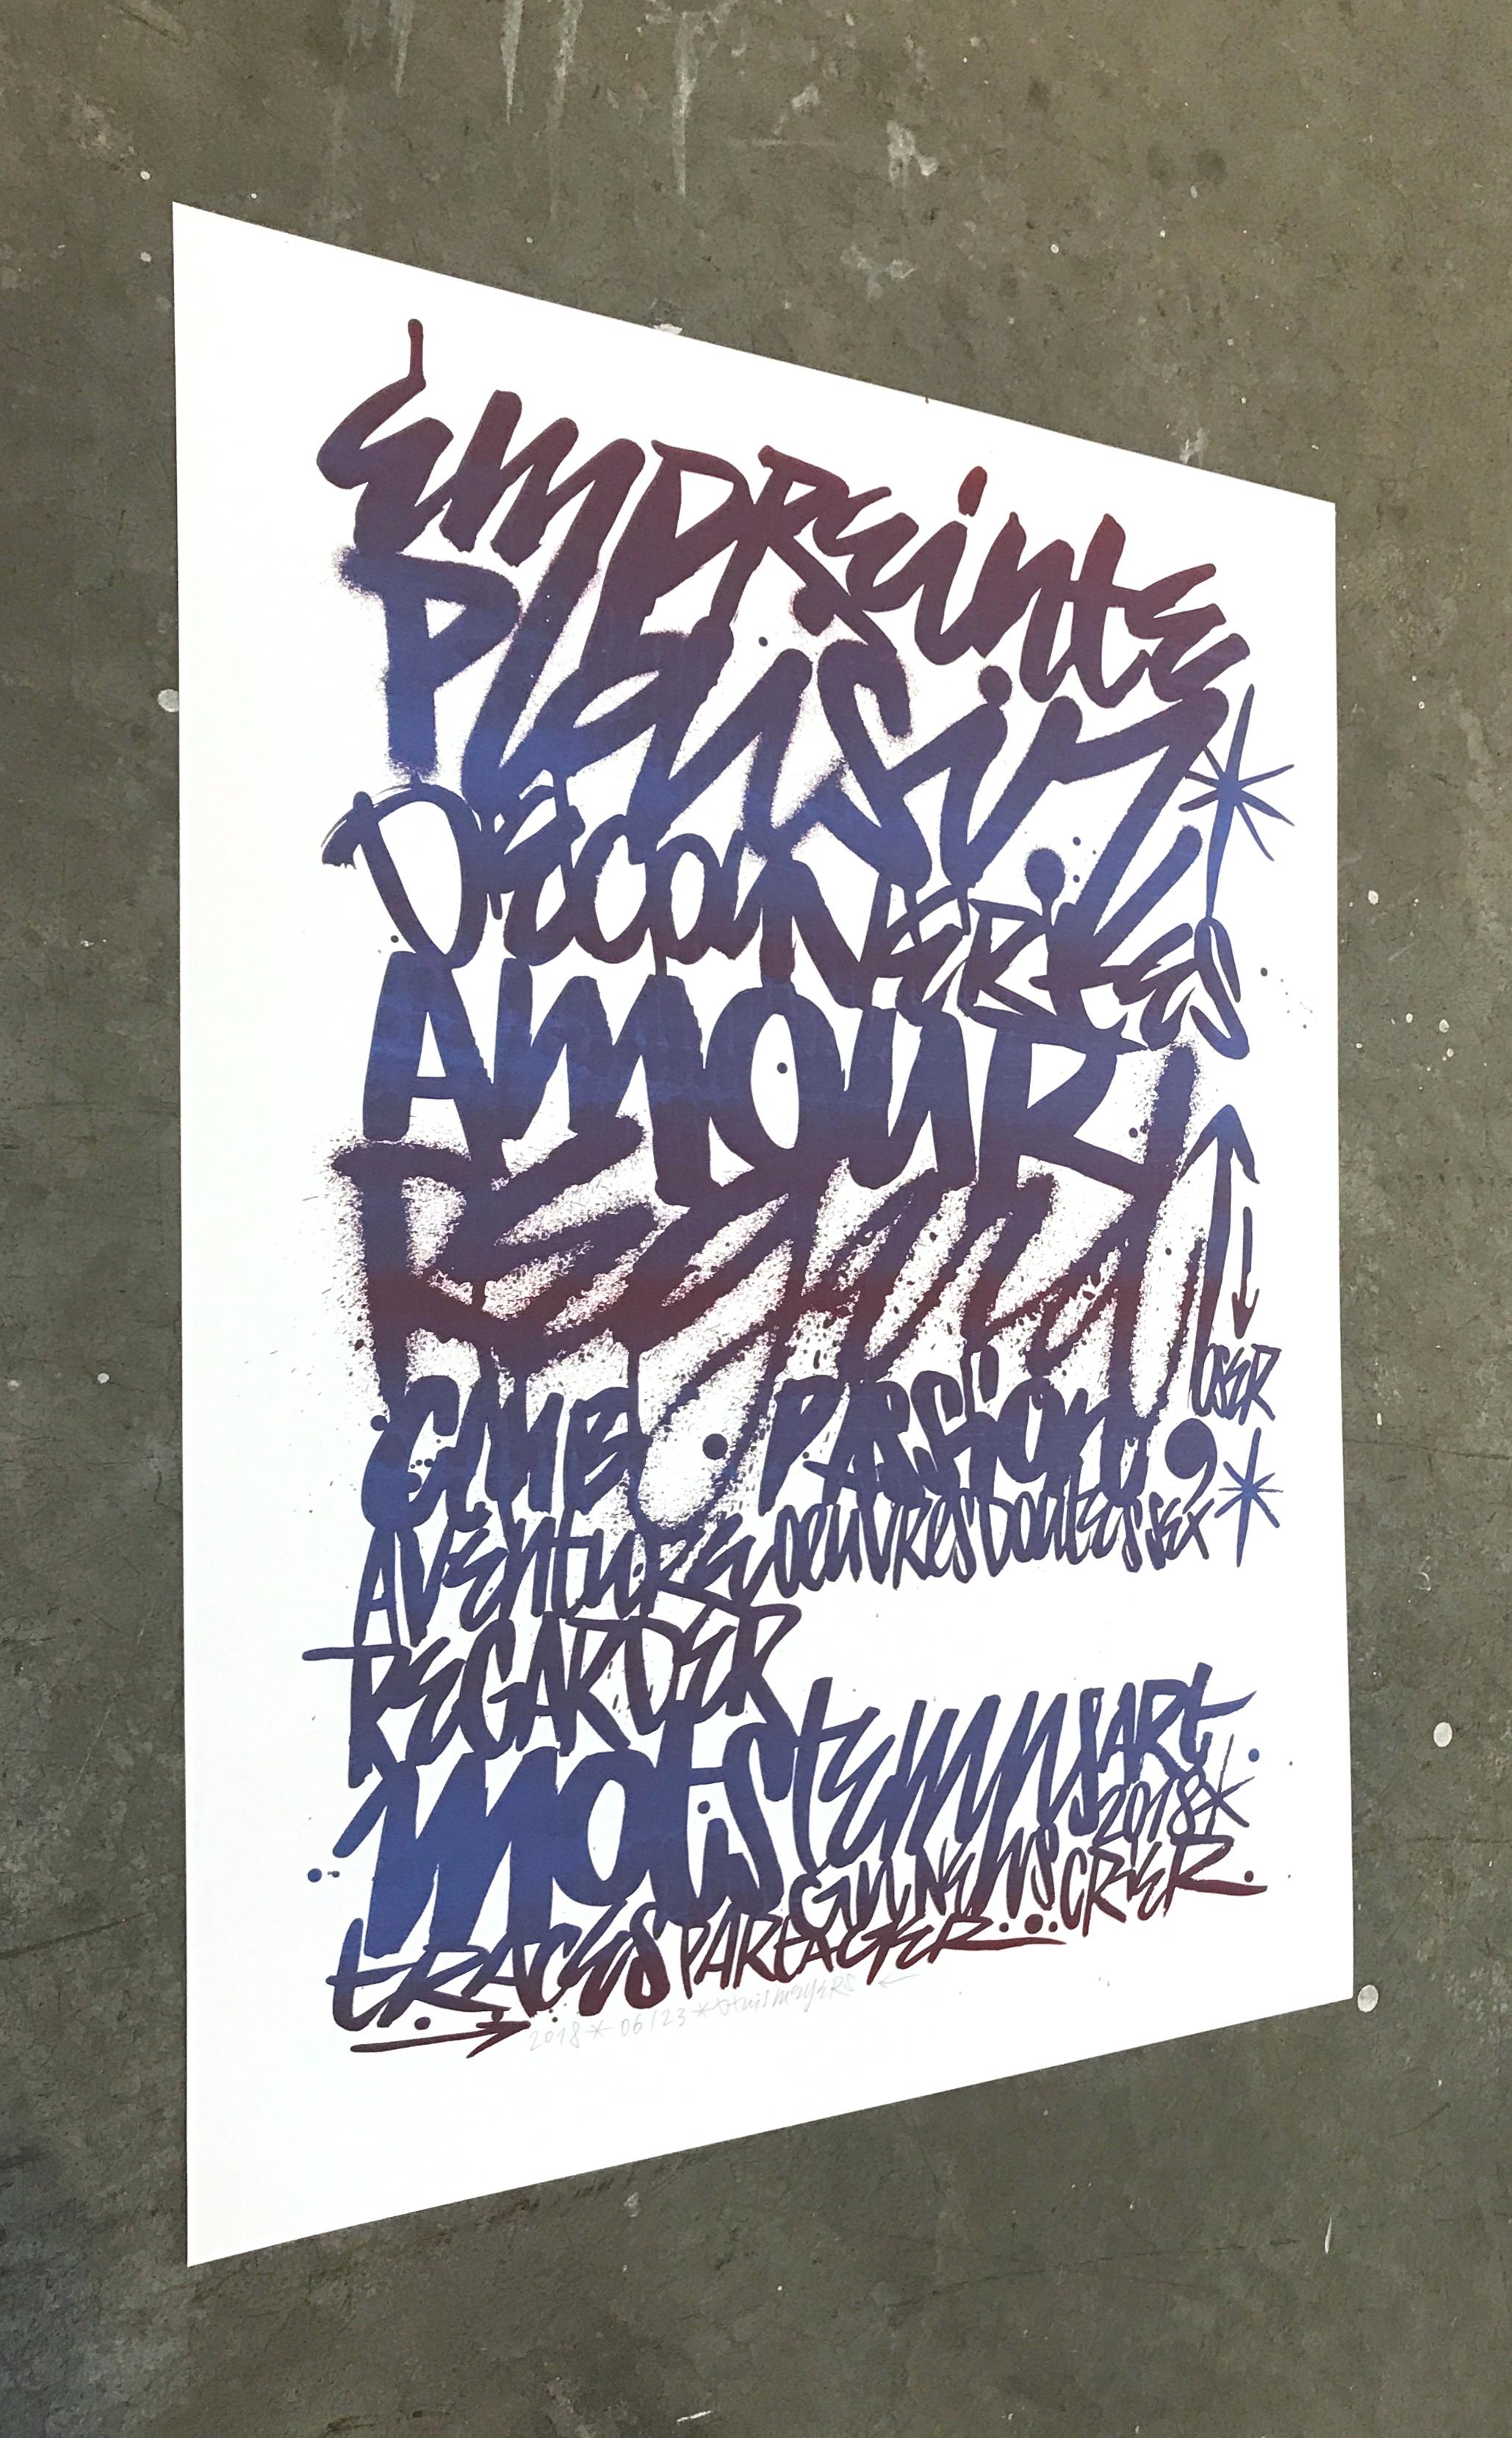 empreinte
Plaisir
Découvertes
AMOUR
Regard
OSER
CAUE PASSION
AVENTURE OEUVRES DOUTES SEX
REGARDER
MOTS TEMPS ART
2018*
CREER
TRACES PARTAGER
2018 * 06/23 *